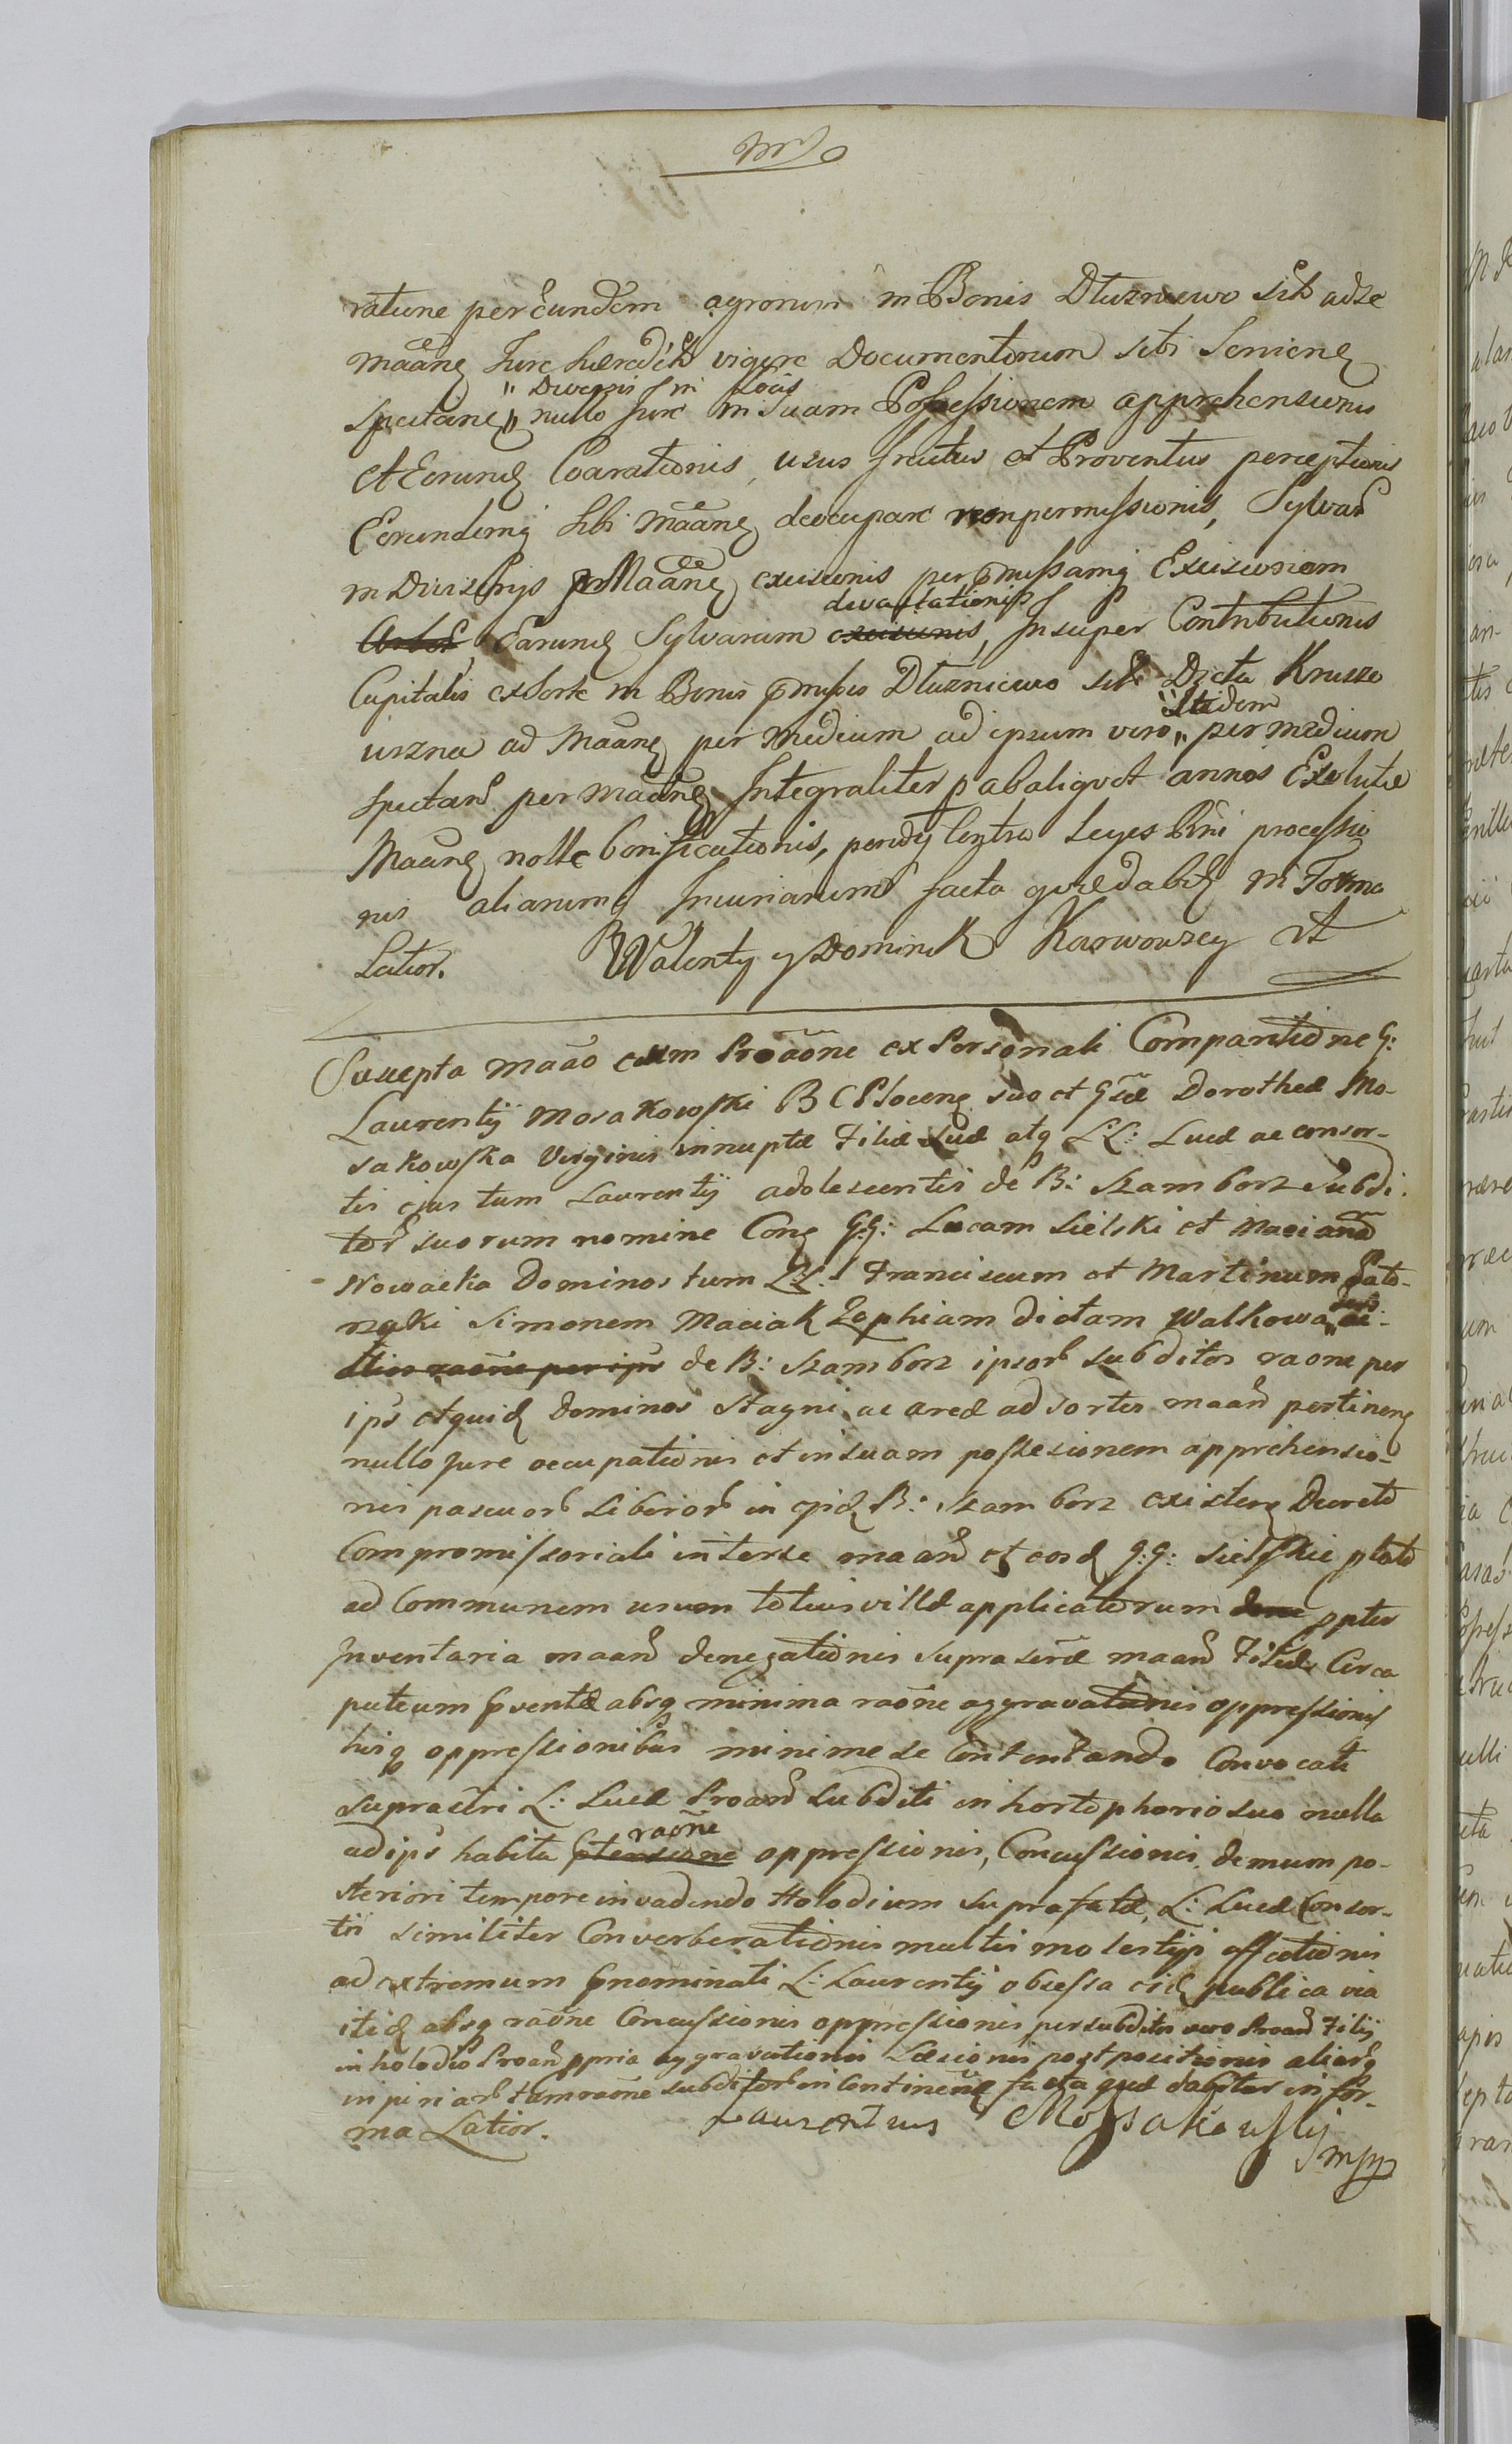 ratune per Eundem agrorum in Bonis Dłuzniewo sitt ad se
maãng Jure hæredit vigore Documentorum sibi Servieng
" Diversis in Locis
spectang " nullo Jure in Suam Possessionem apprehensionis
et Eorundg Coarationis, usus fructus et Proventus perceptionis
Eorundemq sibi maãng deocupare non permissionis, Sylvar
in Diviserijs pr Maãng excisionis per pmissamq Excisionem
devastationis
Arbor Earundg Sylvarum excisionis, Insuper Contributionis
Capitalis ex Sorte in Bonis pmissis Dłuzniewo sitt Dzcta Krusze
Itidem
wizna ad Maãng per medium ad ipsum vero " per medium
spectan per maãng Integraliter p ab aliquot annos Exolutæ
Maãng nolle Bonificationis, contra Leges Rni processio
nis aliarumq Iniuriarum facta quæ dabitg in Forma
Latior. Walenty y Dominik Karwowscy
Suscepta maão cum Proãone ex Personali Comparitione G:
Laurentij Mosakowski B C Ploceng suo et Gsæ Dorotheæ Mo-
sakowska Virginis innuptæ Filiæ suæ atq LL: Lucæ ac consor-
tis ejus tum Laurentij adolescentis de B: Szamborz Subdi-
tor suorum nomine Cong G.G: Lucam Sielski et Marianã
Nowacka Dominos tum LL: Franciscum et Martinum Pato-
rzski Simonem Maciak Zophiam dictam Walkowa "
alios raõne per ips de B: Szamborz ipsor subditos raone per
ips et quidg Dominos stagni ac areæ ad sortes maan pertineng
nullo Jure occupationis et in suam possesionem apprehensio-
nis pascuor Liberior in ejsdg B: Szamborz existeng Decreto
Compromissoriali inter se maan et eosdg G.G: Sielskie plato
ad Communem usum totius villæ applicatorum dene ppter
Inventaria maan denegationis suprascræ maan Filiæ Circa
puteum pventæ absq minima raõne aggravationis oppressionis
hisq oppressionibus minime se Contentando Convocati
supraciri L: Lucæ Proan subditi in horto phorio suo nulla
raõne
ad ips habita ptensione oppressionis, Concussionis, demum po-
steriori tempore invadendo Holodium suprafatæ L: Lucæ Consor-
tis similiter Converberationis multis molestijs affectionis
ad extremum pnominati L: Laurentij obsessa eidg publica via
itidg absq raõne Concussionis oppressionis per subditos vero Proan Filij
in holodio Proan ppria aggravationis Læsionis post positionis aliarq
injuriar tam raõne subditor in Contineng facta quæ dabitur in for-
ma Latior. Laurentius Mossakowskij
mpp